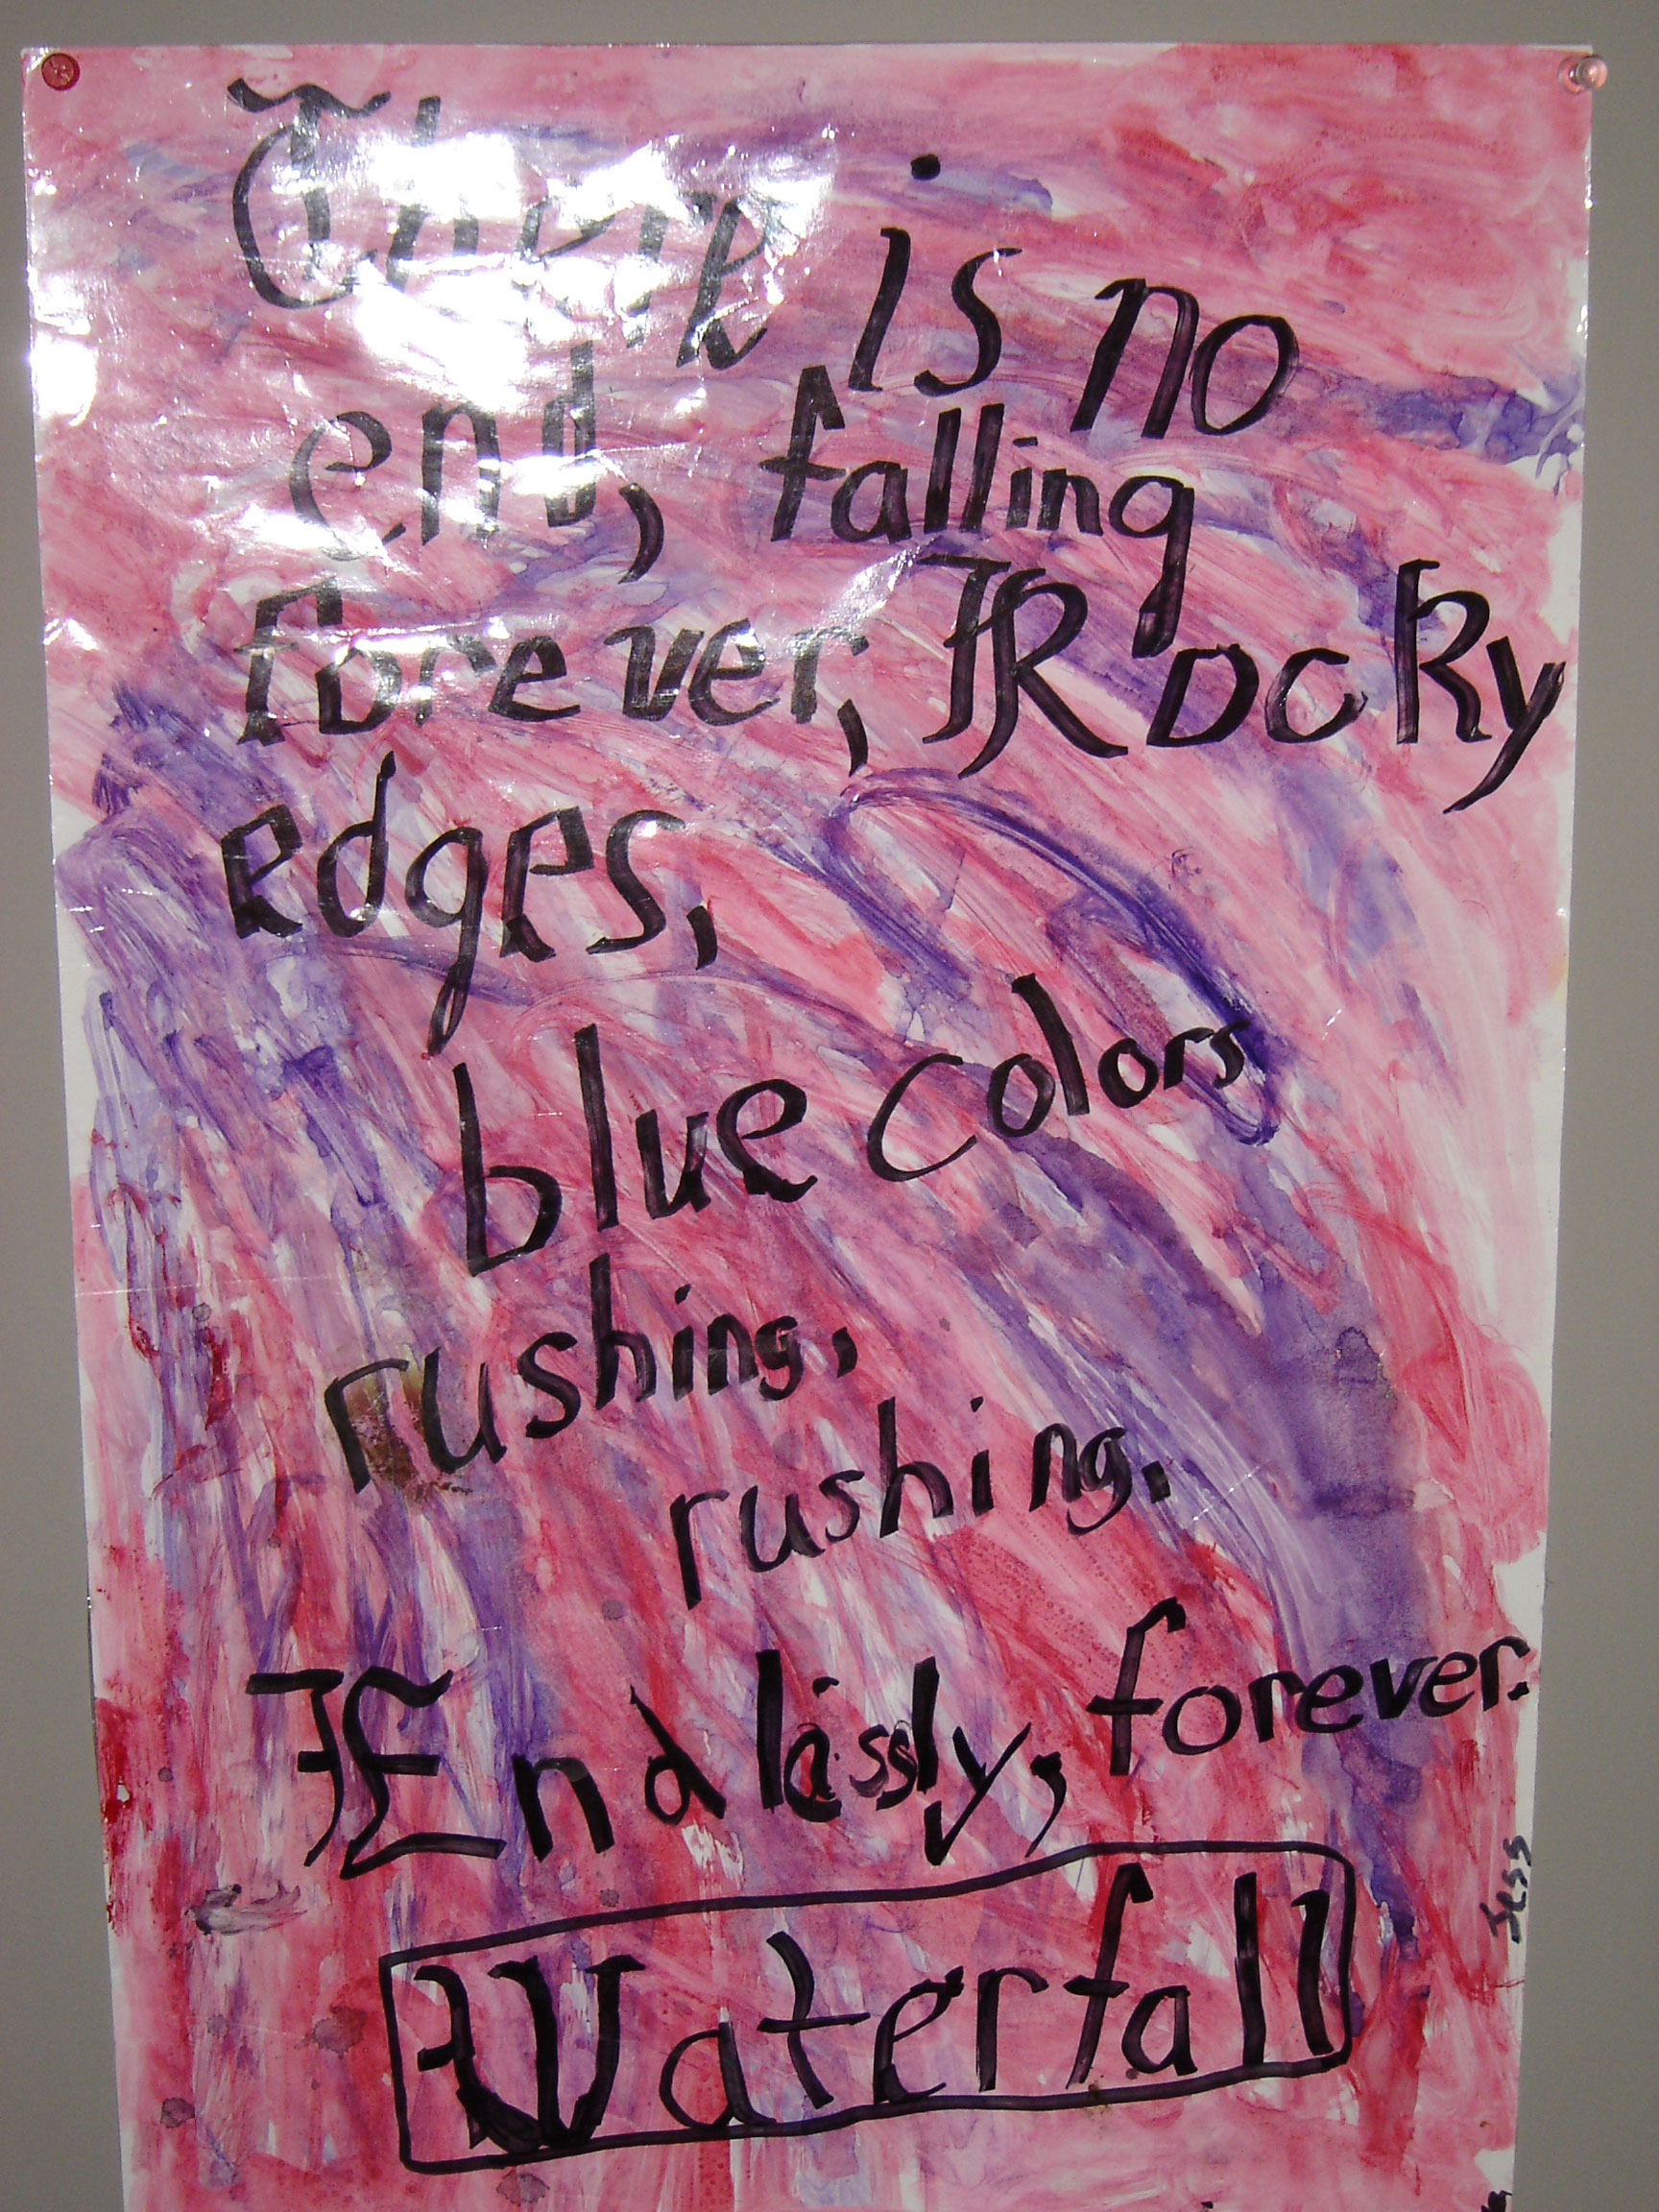 There is no
end, falling
forever, Rocky
edges,
blue colors
rushing,
rushing.
Endlissly, forever.
Waterfall
Jess